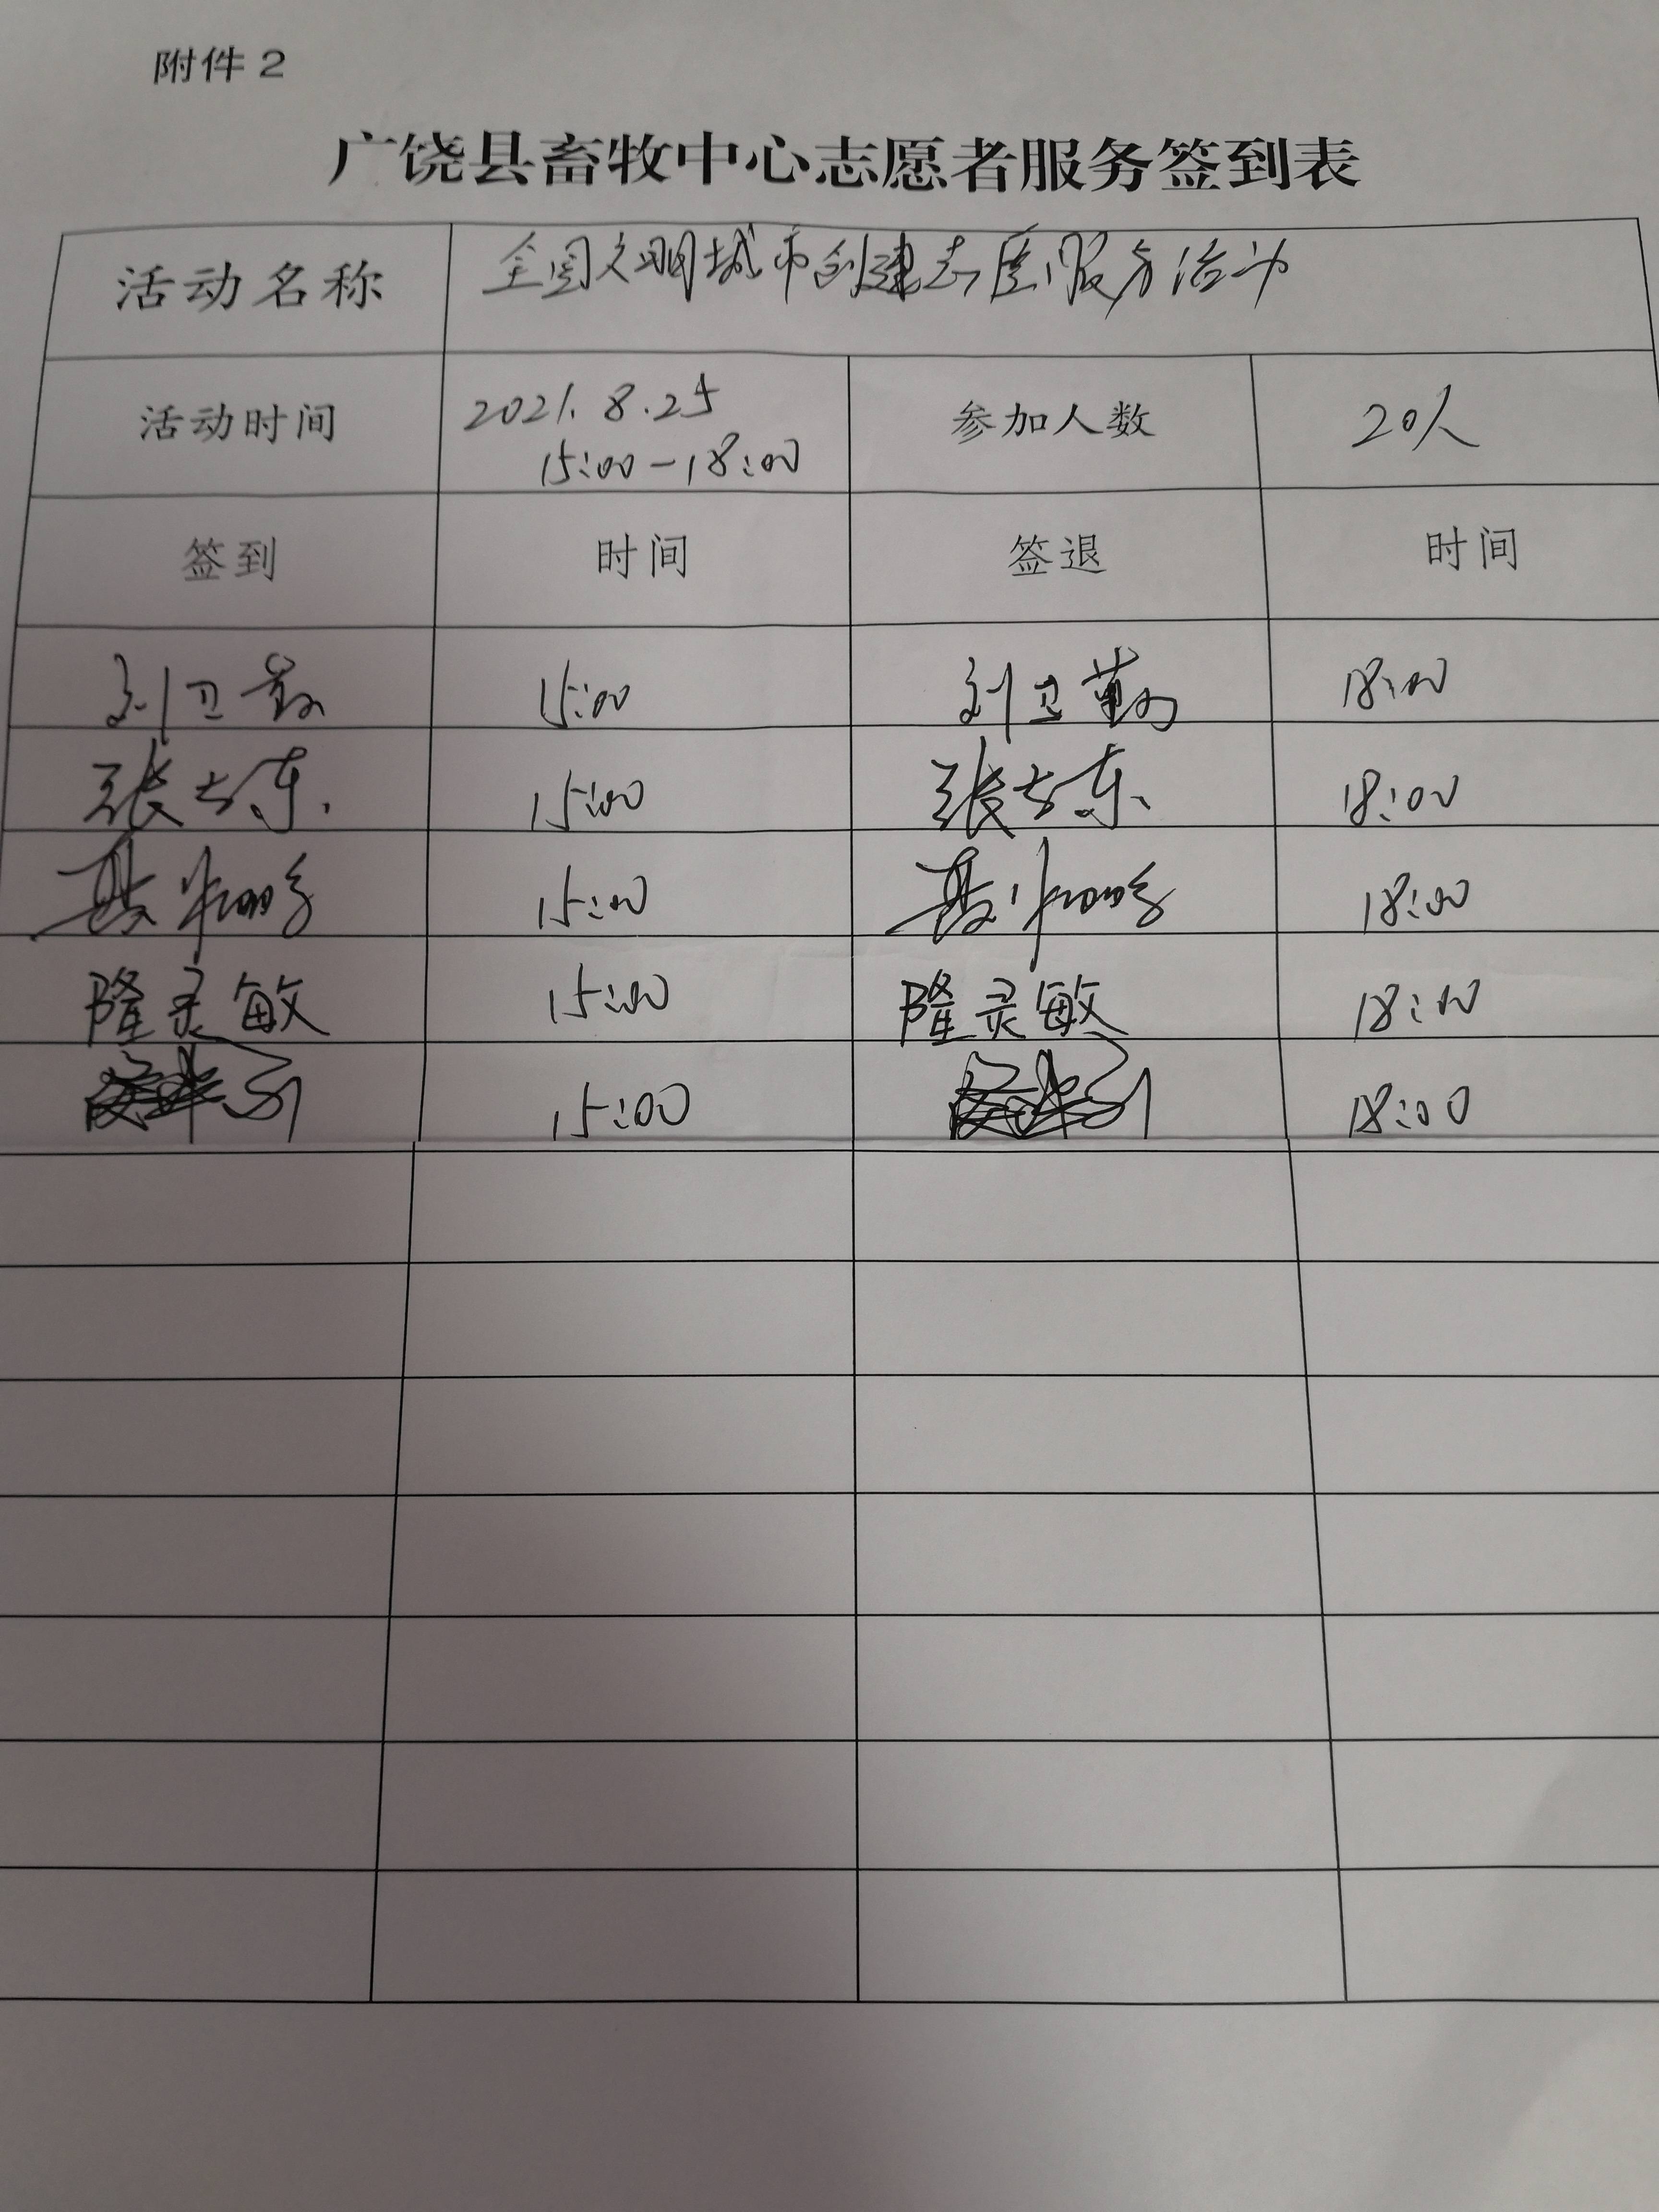 附件2
广饶县畜牧中心志愿者服务签到表
活动名称 全国文明城市创建志愿服务活动
活动时间 2021.8.25 参加人数 20人
15:00-18:00
签到 时间 签退 时间
刘卫勤 15:00 刘卫勤 18:00
张士东 15:00 张士东 18:00
15:00 18:00
隆灵敏 15:00 隆灵敏 18:00
15:00 18:00